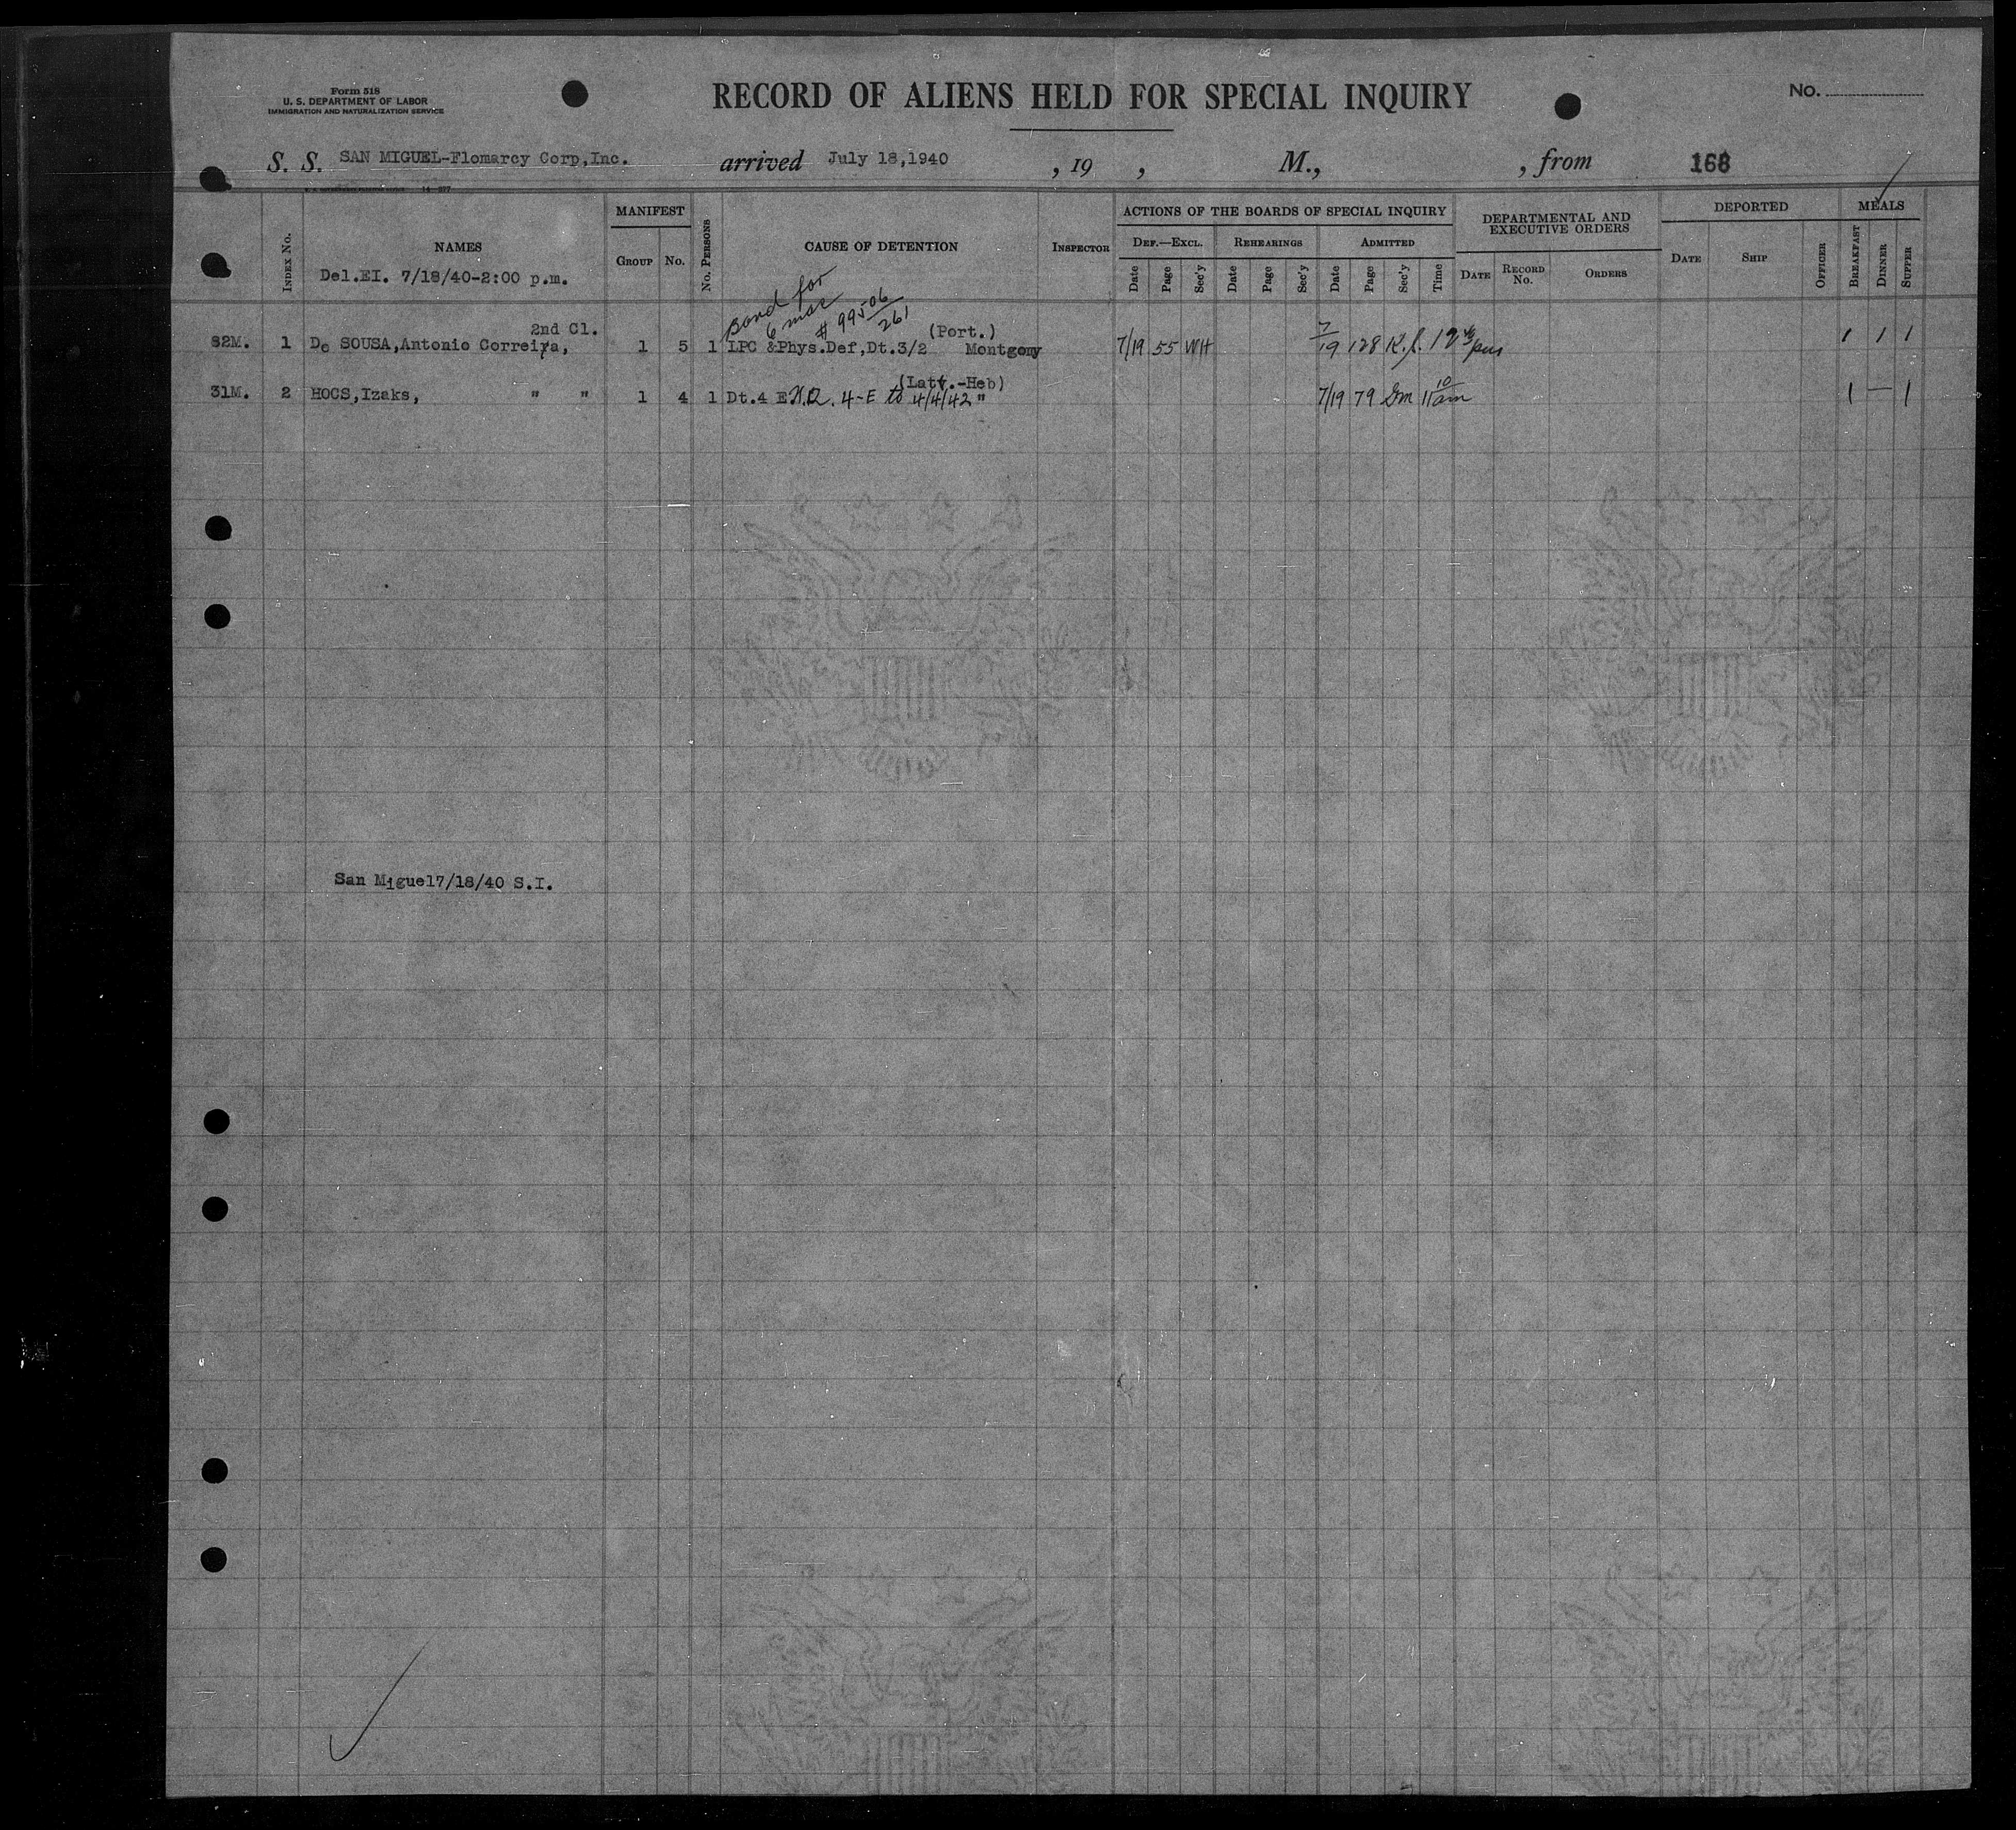 Form 518
U. S. DEPARTMENT OF LABOR
IMMIGRATION AND NATURALIZATION SERVICE
RECORD OF ALIENS HELD FOR SPECIAL INQUIRY
No.
S. S. SAN MIGUEL-Flomarcy Corp,Inc. arrived July 18,1940 , 19 , M., , from 168
INDEX No.
NAMES
Del.EI. 7/18/40-2:00 p.m.
MANIFEST
GROUP No.
No. PERSONS
CAUSE OF DETENTION
INSPECTOR
ACTIONS OF THE BOARDS OF SPECIAL INQUIRY
DEF.—EXCL. REHEARINGS ADMITTED
Date Page Sec'y Date Page Sec'y Date Page Sec'y Time
DEPARTMENTAL AND
EXECUTIVE ORDERS
DATE RECORD No. ORDERS
DEPORTED
DATE SHIP OFFICER
MEALS
BREAKFAST DINNER SUPPER
Bond for
6 mos
# 99506/261
2nd Cl. (Port.)
82M. 1 De SOUSA,Antonio Correira, 1 5 1 LPC &Phys.Def,Dt.3/2 Montgomy 7/19 55 WH 7/19 128 1 1 1
(Latv.-Heb)
31M. 2 HOCS,Izaks, " " 1 4 1 Dt.4 E 4-E to 4/4/42 " 7/19 79 11 10 am 1 — 1
San Miguel7/18/40 S.I.